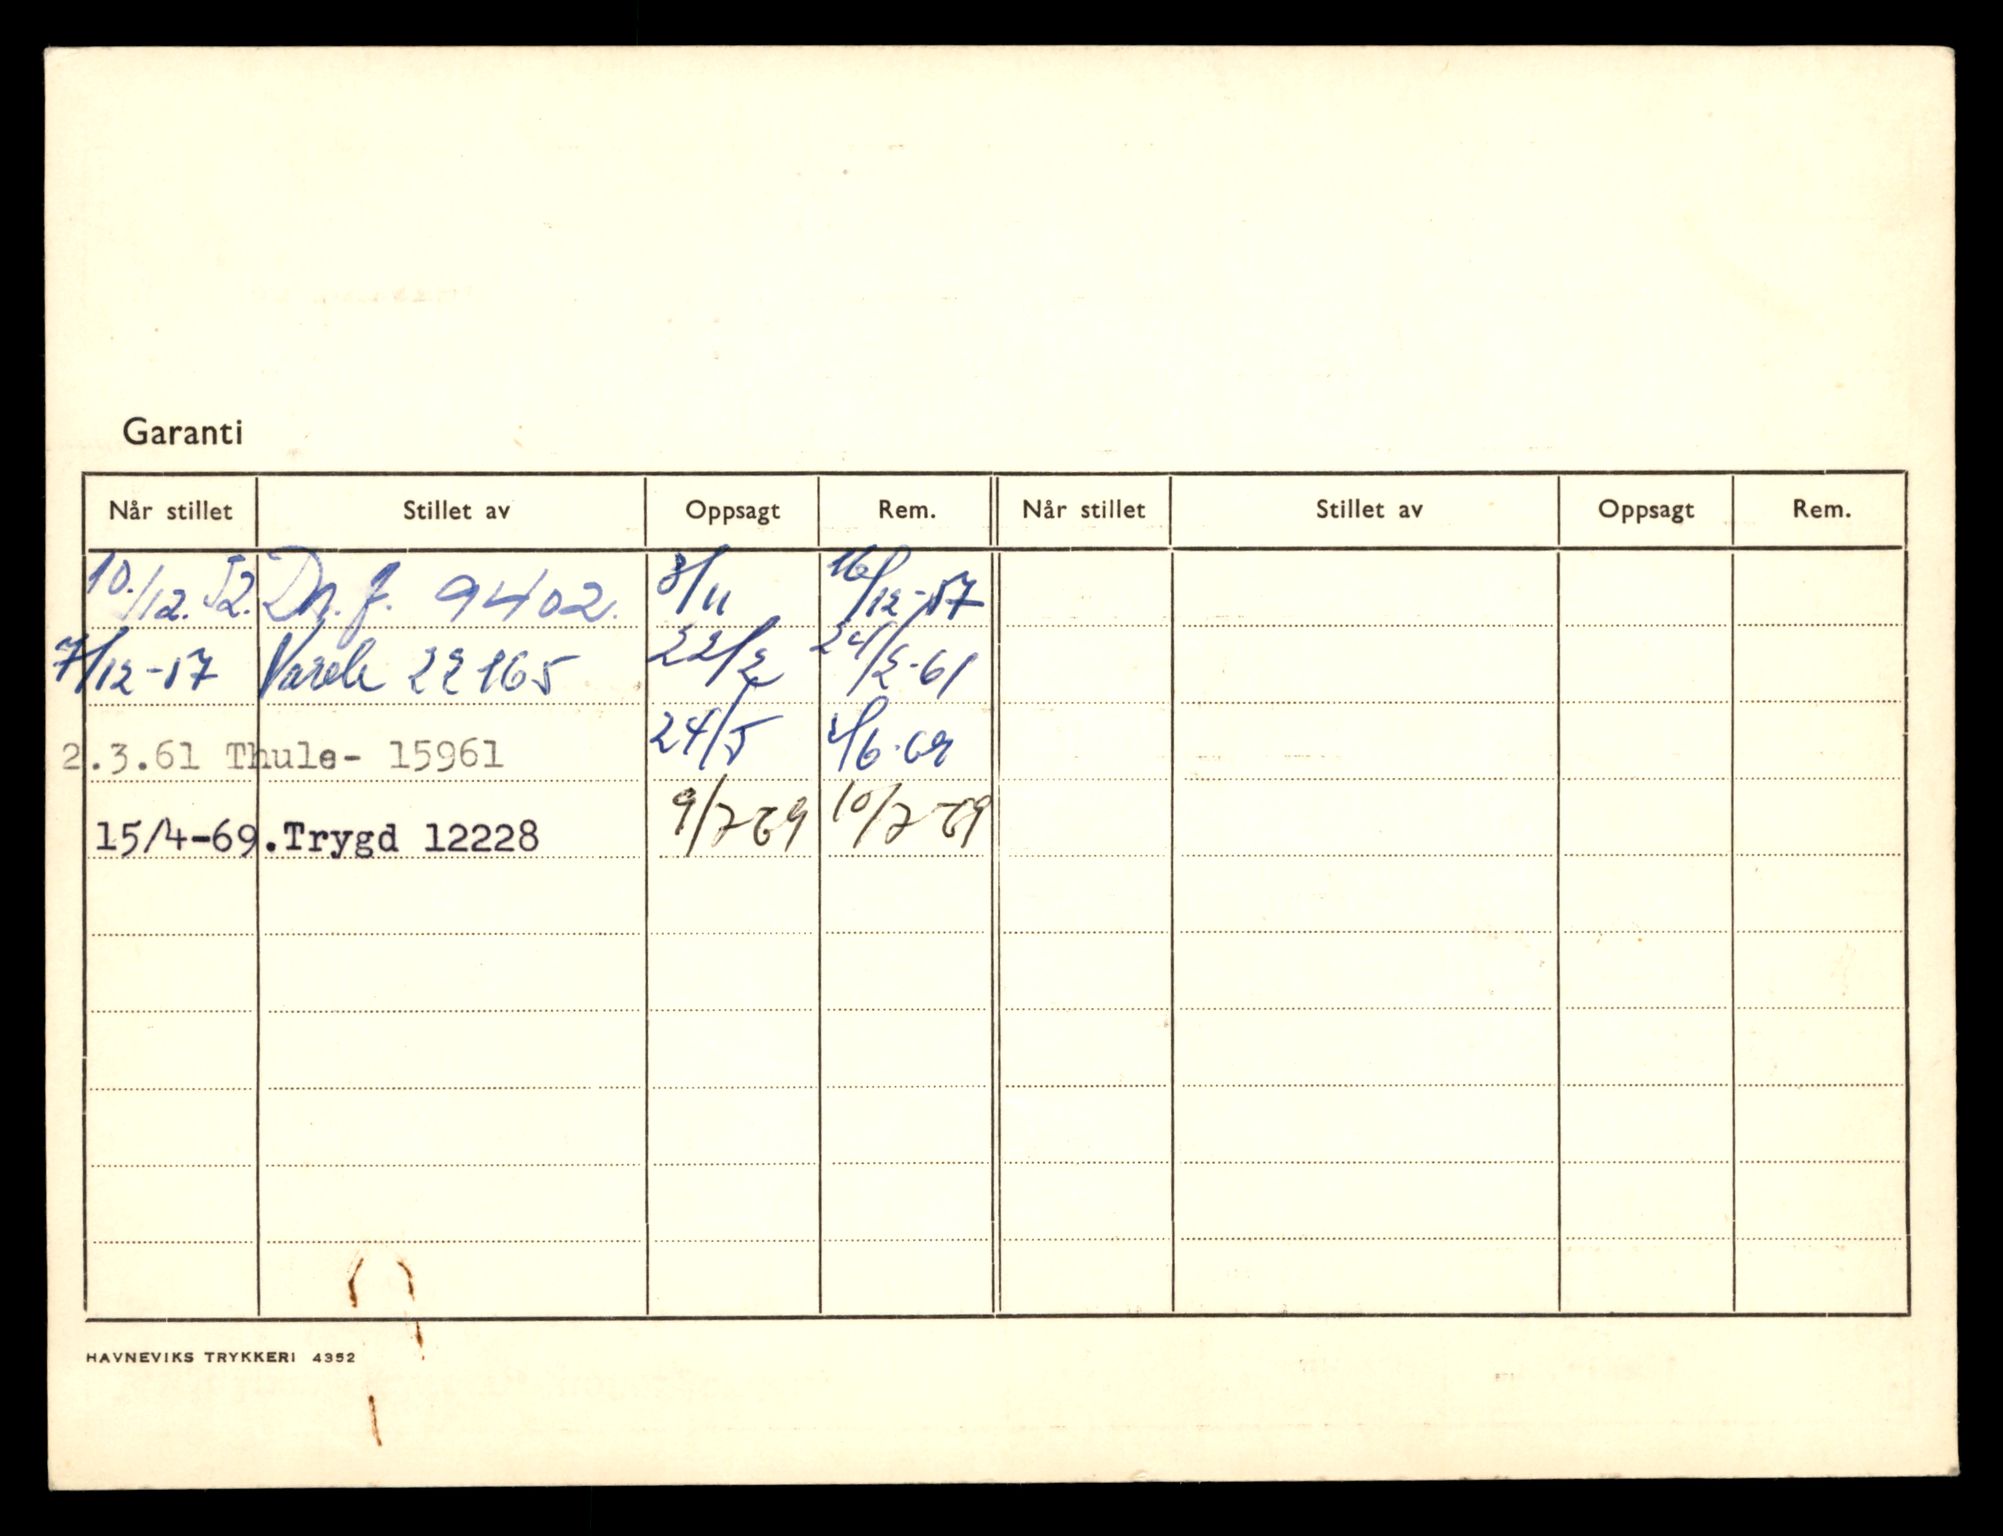 Garanti
Når stillet Stillet av Oppsagt Rem. Når stillet Stillet av Oppsagt Rem.
10./12. 52. Dn. f. 9402. 3/11 16/12-57
7/12-57 22165 22/2 24/2-61
2.3.61 Thule- 15961 24/5
15/4-69. Trygd 12228 9/7 69 10/7 69
HAVNEVIKS TRYKKERI 4352